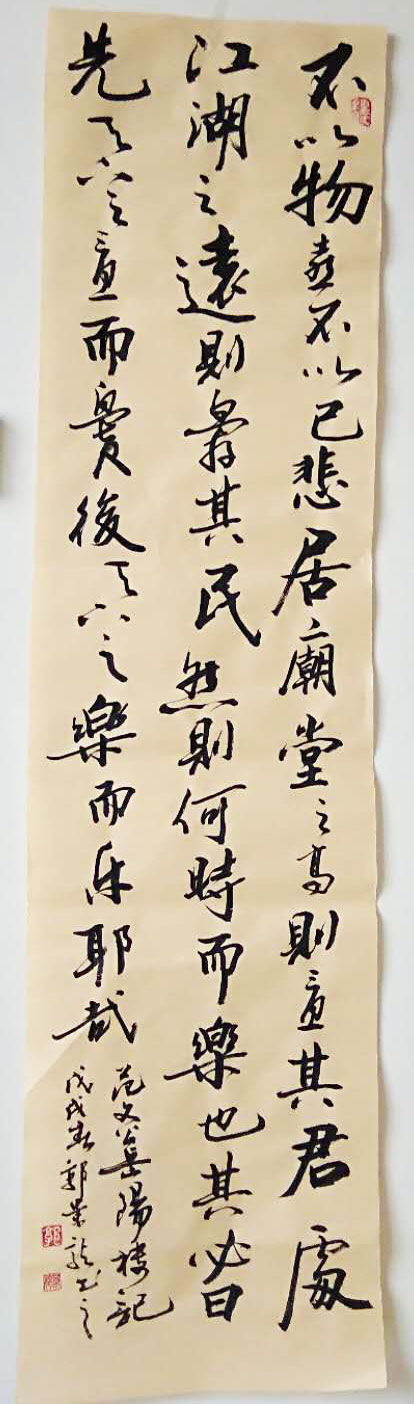 不以物喜不以己悲居廟堂之高則憂其君處
江湖之遠則憂其民然則何時而樂也其必曰
先天下之憂而憂後天下之樂而乐耶哉
范文公岳陽楼記
戊戌春郭景龍书之